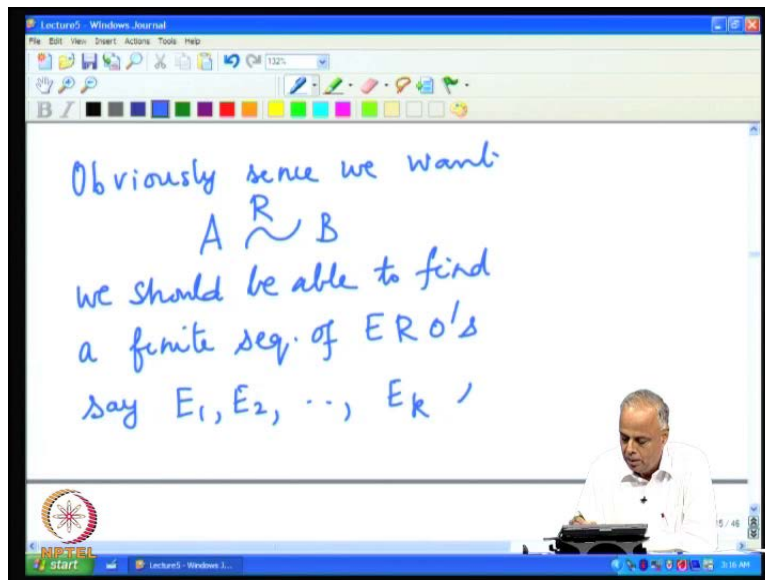 Lecture5 - Windows Journal
File Edit View Insert Actions Tools Help
132%
B I
Obviously sence we want
A R~ B
we should be able to find
a finite seq. of ERO's
say E1, E2, .., Ek ,
15 / 46
NPTEL
start Lecture5 - Windows J... 3:16 AM